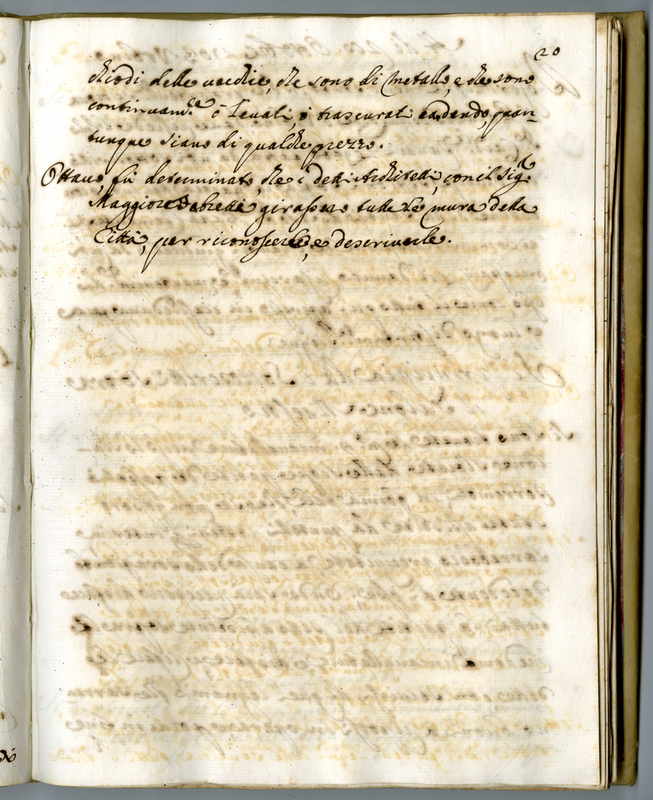 20
chiodi delle vecchie, che sono di metallo, e che sono
continuam.te ò levati, ò trascurati cadendo, quan-
tunque siano di qualche prezzo.
Ottavo, fù determinato, che i detti Architetti, con il Sig.r
Maggiore girassero tutte le mura della
Città, per riconoscerle, e descriverle.